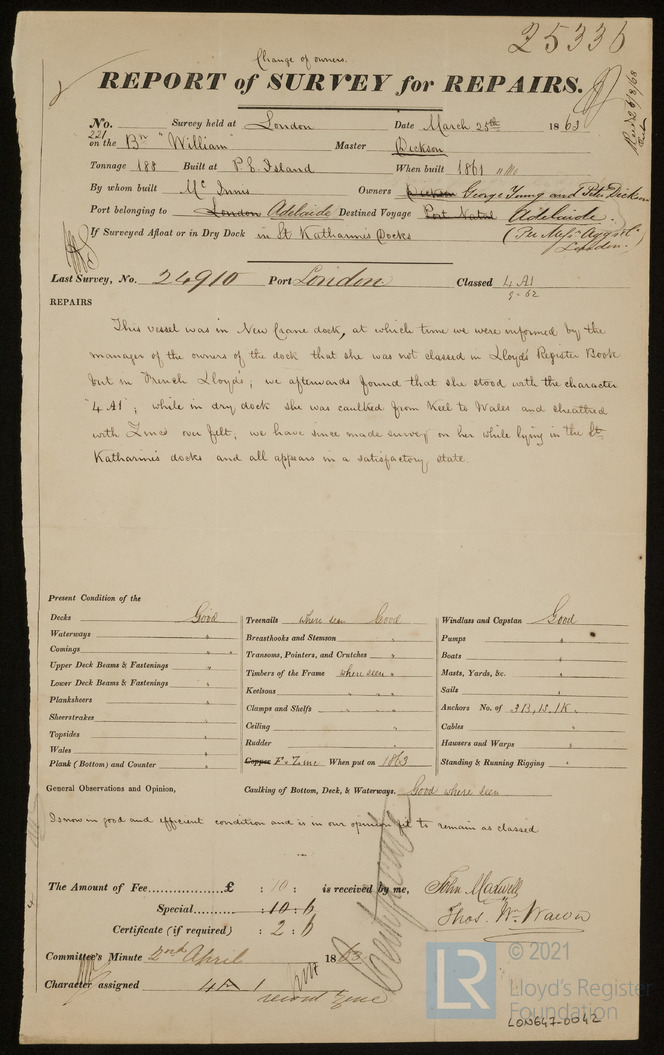 25336
Change of owners.
REPORT of SURVEY for REPAIRS.
No. 221 Survey held at London Date March 25th 1863
on the Bn "William" Master Dickson
Tonnage 188 Built at P. E. Island When built 1861
By whom built Mc Innis Owners Dickson George Young and Peter Dickson
Port belonging to London Adelaide Destined Voyage Port Natal Adelaide.
If Surveyed Afloat or in Dry Dock in St Katharine's Docks
London.
Last Survey, No. 24910 Port London Classed 4 A1
9-62
REPAIRS
This vessel was in New Crane dock, at which time we were informed by the
manager of the owners of the dock that she was not classed in Lloyd's Register Book
but in French Lloyd's; we afterwards found that she stood with the character
"4 A1"; while in dry dock she was caulked from Keel to Wales and sheathed
with Zinc over felt; we have since made survey on her while lying in the St.
Katharine's docks and all appears in a satisfactory state.
Present Condition of the
Decks Good
Waterways "
Comings "
Upper Deck Beams & Fastenings "
Lower Deck Beams & Fastenings "
Planksheers "
Sheerstrakes "
Topsides "
Wales "
Plank (Bottom) and Counter "
Treenails where seen Good
Breasthooks and Stemson "
Transoms, Pointers, and Crutches "
Timbers of the Frame where seen "
Keelsons "
Clamps and Shelfs "
Ceiling "
Rudder "
Copper F. Zinc When put on 1863
Windlass and Capstan Good
Pumps "
Boats "
Masts, Yards, &c. "
Sails "
Anchors No. of 3B, 1S, 1K.
Cables "
Hawsers and Warps "
Standing & Running Rigging "
General Observations and Opinion, Caulking of Bottom, Deck, & Waterways. Good where seen
Is now in good and efficient condition and is in our opinion fit to remain as classed
The Amount of Fee............... £ : 10 : is received by me, John Maxwell
Special.......... : 10 : 6 Thos. Wm.
Certificate (if required) : 2 : 6
Committee's Minute 2nd April 1863
Character assigned 4 A 1
record zinc
© 2021
LR
Lloyd's Register
Foundation
LON647-0042